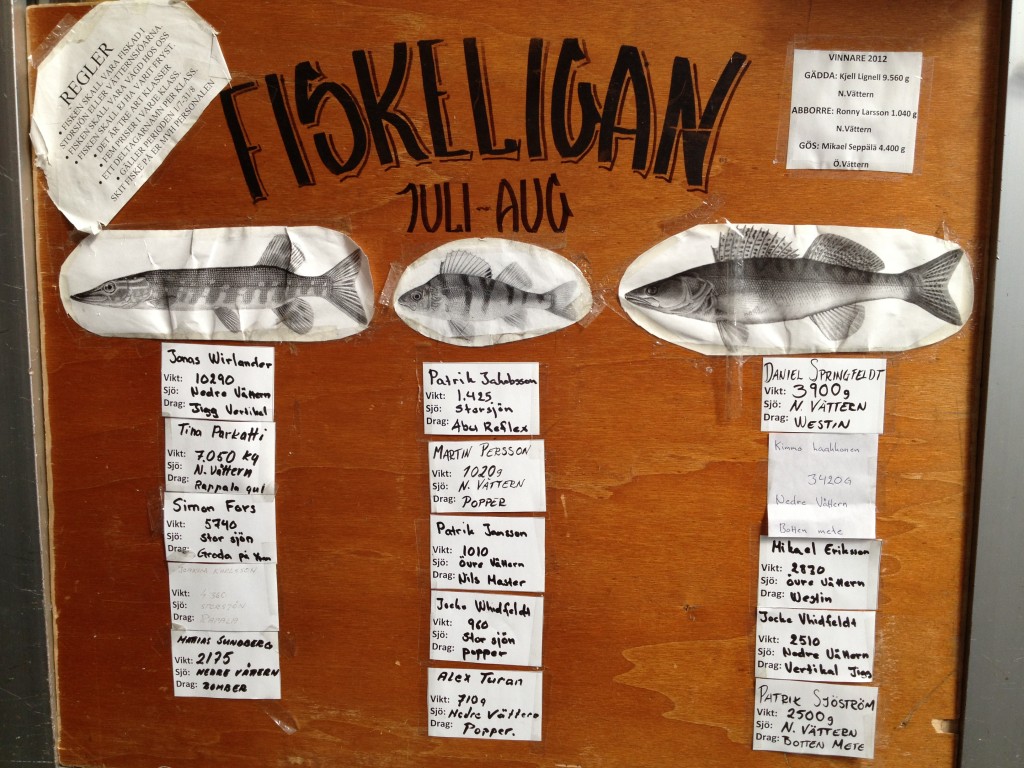 REGLER
• FISKEN SKALL VARA FISKAD I
STORSJÖN ELLER VÄTTERNSJÖARNA.
• FISKEN SKALL VARA VÄGD HOS OSS
• FISKEN SKALL EJ HA VARIT FRYST
• DET ÄR TRE ART KLASSER
• FEM PRISER I VARJE KLASS.
• ETT DELTAGARNAMN PER KLASS
• GÄLLER PERIODEN
SKIT FISKE PÅ ER M VH PERSONALEN
FISKELIGAN
JULI-AUG
VINNARE 2012
GÄDDA: Kjell Lignell 9.560 g
N.Vättern
ABBORRE: Ronny Larsson 1.040 g
N.Vättern
GÖS: Mikael Seppälä 4.400 g
Ö.Vättern
Jonas Wirlander
Vikt: 10290
Sjö: Nedre Vättern
Drag: Jigg Vertikal
Tina Parkatti
Vikt: 7.050 kg
Sjö: N. Vättern
Drag: Rappala gul
Simon Fors
Vikt: 5740
Sjö: Stor sjön
Drag: Groda på
KARLSSON
Vikt:
Sjö: STORSJÖN
Drag: RAPALA
MATIAS SUNDBERG
Vikt: 2175
Sjö: NEDRE VÄTTERN
Drag: BOMBER
Patrik Jakobsson
Vikt: 1.425
Sjö: Storsjön
Drag: Abu Reflex
MARTIN PERSSON
Vikt: 1020g
Sjö: N. VÄTTERN
Drag: POPPER
Patrik Jansson
Vikt: 1010
Sjö: Övre Vättern
Drag: Nils Master
Jocke Whidfeldt
Vikt: 960
Sjö: Stor sjön
Drag: popper
ALEX TURAN
Vikt: 710g
Sjö: Nedre Vättern
Drag: Popper.
DANIEL SPRINGFELDT
Vikt: 3900g
Sjö: N. VÄTTERN
Drag: WESTIN
Kimmo haakkonen
3420G
Nedre Vättern
Botten mete
Mikael Eriksson
Vikt: 2830
Sjö: Övre Vättern
Drag: Westin
Jocke Vhidfeldt
Vikt: 2510
Sjö: Nedre Vättern
Drag: Vertikal Jigg
PATRIK SJÖSTRÖM
Vikt: 2500g
Sjö: N. VÄTTERN
Drag: BOTTEN METE